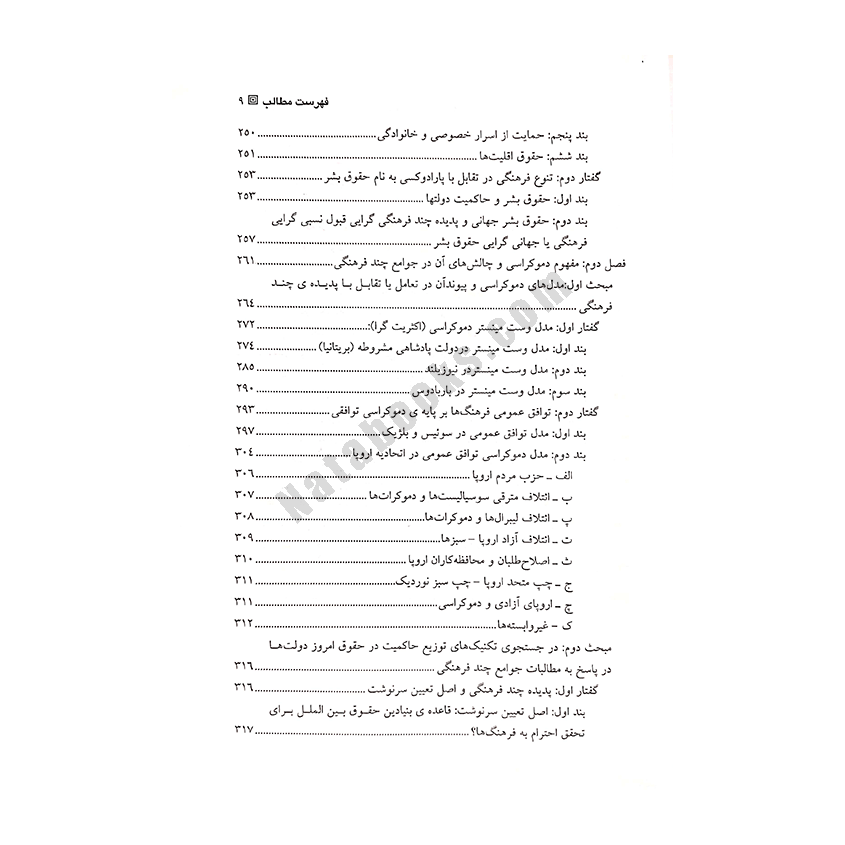 فهرست مطالب ۹
بند پنجم: حمایت از اسرار خصوصی و خانوادگی ۲۵۰
بند ششم: حقوق اقلیت‌ها ۲۵۱
گفتار دوم: تنوع فرهنگی در تقابل با پارادوکسی به نام حقوق بشر ۲۵۳
بند اول: حقوق بشر و حاکمیت دولتها ۲۵۳
بند دوم: حقوق بشر جهانی و پدیده چند فرهنگی گرایی قبول نسبی گرایی
فرهنگی یا جهانی گرایی حقوق بشر ۲۵۷
فصل دوم: مفهوم دموکراسی و چالش‌های آن در جوامع چند فرهنگی ۲۶۱
مبحث اول:مدل‌های دموکراسی و پیوندآن در تعامل یا تقابل با پدیده ی چند
فرهنگی ۲۶۴
گفتار اول: مدل وست مینستر دموکراسی (اکثریت گرا): ۲۷۲
بند اول: مدل وست مینستر دردولت پادشاهی مشروطه (بریتانیا) ۲۷۴
بند دوم: مدل وست مینستردر نیوزیلند ۲۸۵
بند سوم: مدل وست مینستر در باربادوس ۲۹۰
گفتار دوم: توافق عمومی فرهنگ‌ها بر پایه ی دموکراسی توافقی ۲۹۳
بند اول: مدل توافق عمومی در سوئیس و بلژیک ۲۹۷
بند دوم: مدل دموکراسی توافق عمومی در اتحادیه اروپا ۳۰۴
الف ـ حزب مردم اروپا ۳۰۶
ب ـ ائتلاف مترقی سوسیالیست‌ها و دموکرات‌ها ۳۰۷
پ ـ ائتلاف لیبرال‌ها و دموکرات‌ها ۳۰۸
ت ـ ائتلاف آزاد اروپا – سبزها ۳۰۹
ث ـ اصلاح‌طلبان و محافظه‌کاران اروپا ۳۱۰
ج ـ چپ متحد اروپا – چپ سبز نوردیک ۳۱۱
چ ـ اروپای آزادی و دموکراسی ۳۱۱
ک – غیروابسته‌ها ۳۱۲
مبحث دوم: در جستجوی تکنیک‌های توزیع حاکمیت در حقوق امروز دولت‌ها
در پاسخ به مطالبات جوامع چند فرهنگی ۳۱۶
گفتار اول: پدیده چند فرهنگی و اصل تعیین سرنوشت ۳۱۶
بند اول: اصل تعیین سرنوشت: قاعده ی بنیادین حقوق بین الملل برای
تحقق احترام به فرهنگ‌ها؟ ۳۱۷
Natabooks.com